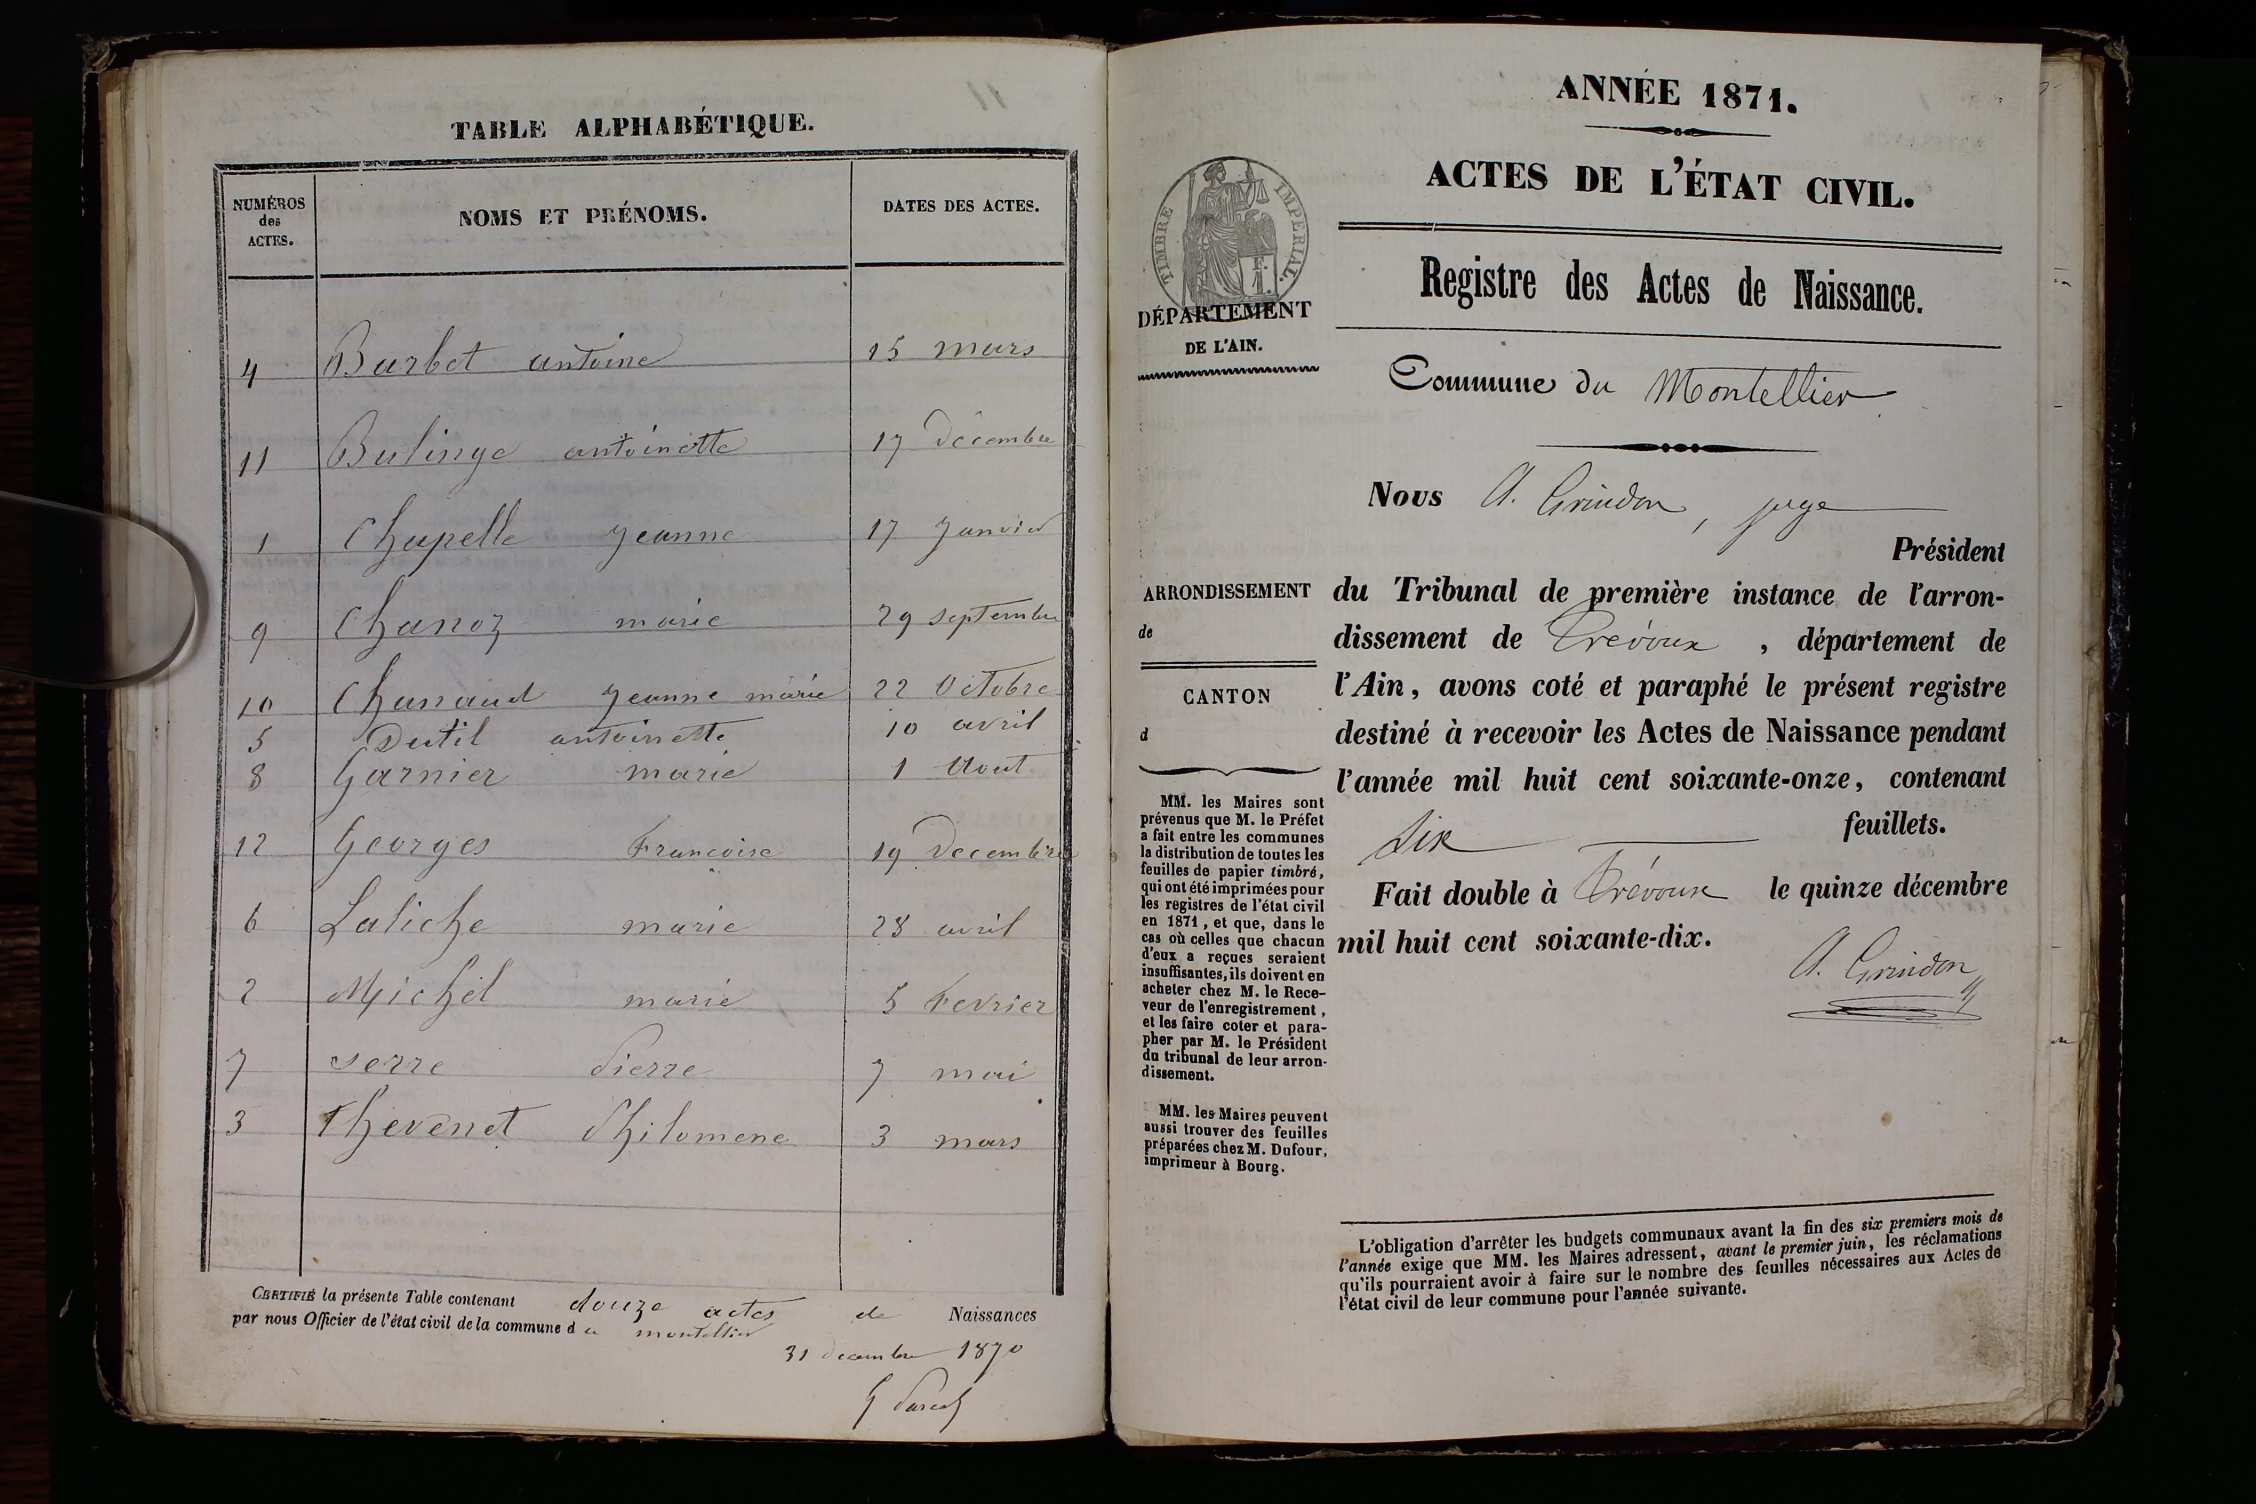 TABLE ALPHABÉTIQUE.
NUMÉROS
des
ACTES.
NOMS ET PRÉNOMS.
DATES DES ACTES.
4 Barbet antoine 15 mars
11 Bulinge antoinette 17 décembre
1 Chapelle Jeanne 17 Janvier
9 Chanoz marie 29 septembre
10 Chanaud Jeanne marie 22 Octobre
5 Dutil antoinette 10 avril
8 Garnier marie 1 Aout
12 Georges Francoise 19 Decembre
6 Laliche marie 28 avril
2 Michel marie 5 Fevrier
7 Serre Pierre 7 mai
3 Thevenet Philomene 3 mars
CERTIFIÉ la présente Table contenant douze actes de Naissances
par nous Officier de l'état civil de la commune du montellier
31 decembre 1870
ANNÉE 1871.
ACTES DE L'ÉTAT CIVIL.
TIMBRE IMPERIAL.
1 F.
DÉPARTEMENT
DE L'AIN.
Registre des Actes de Naissance.
Commune du Montellier
Nous A. Grindon, juge
Président
ARRONDISSEMENT
de
CANTON
d
du Tribunal de première instance de l'arron-
dissement de Trévoux, département de
l'Ain, avons coté et paraphé le présent registre
destiné à recevoir les Actes de Naissance pendant
l'année mil huit cent soixante-onze, contenant
six feuillets.
Fait double à Trévoux le quinze décembre
mil huit cent soixante-dix.
A. Grindon
MM. les Maires sont
prévenus que M. le Préfet
a fait entre les communes
la distribution de toutes les
feuilles de papier timbré,
qui ont été imprimées pour
les registres de l'état civil
en 1871, et que, dans le
cas où celles que chacun
d'eux a reçues seraient
insuffisantes, ils doivent en
acheter chez M. le Rece-
veur de l'enregistrement,
et les faire coter et para-
pher par M. le Président
du tribunal de leur arron-
dissement.
MM. les Maires peuvent
aussi trouver des feuilles
préparées chez M. Dufour,
imprimeur à Bourg.
L'obligation d'arrêter les budgets communaux avant la fin des six premiers mois de
l'année exige que MM. les Maires adressent, avant le premier juin, les réclamations
qu'ils pourraient avoir à faire sur le nombre des feuilles nécessaires aux Actes de
l'état civil de leur commune pour l'année suivante.